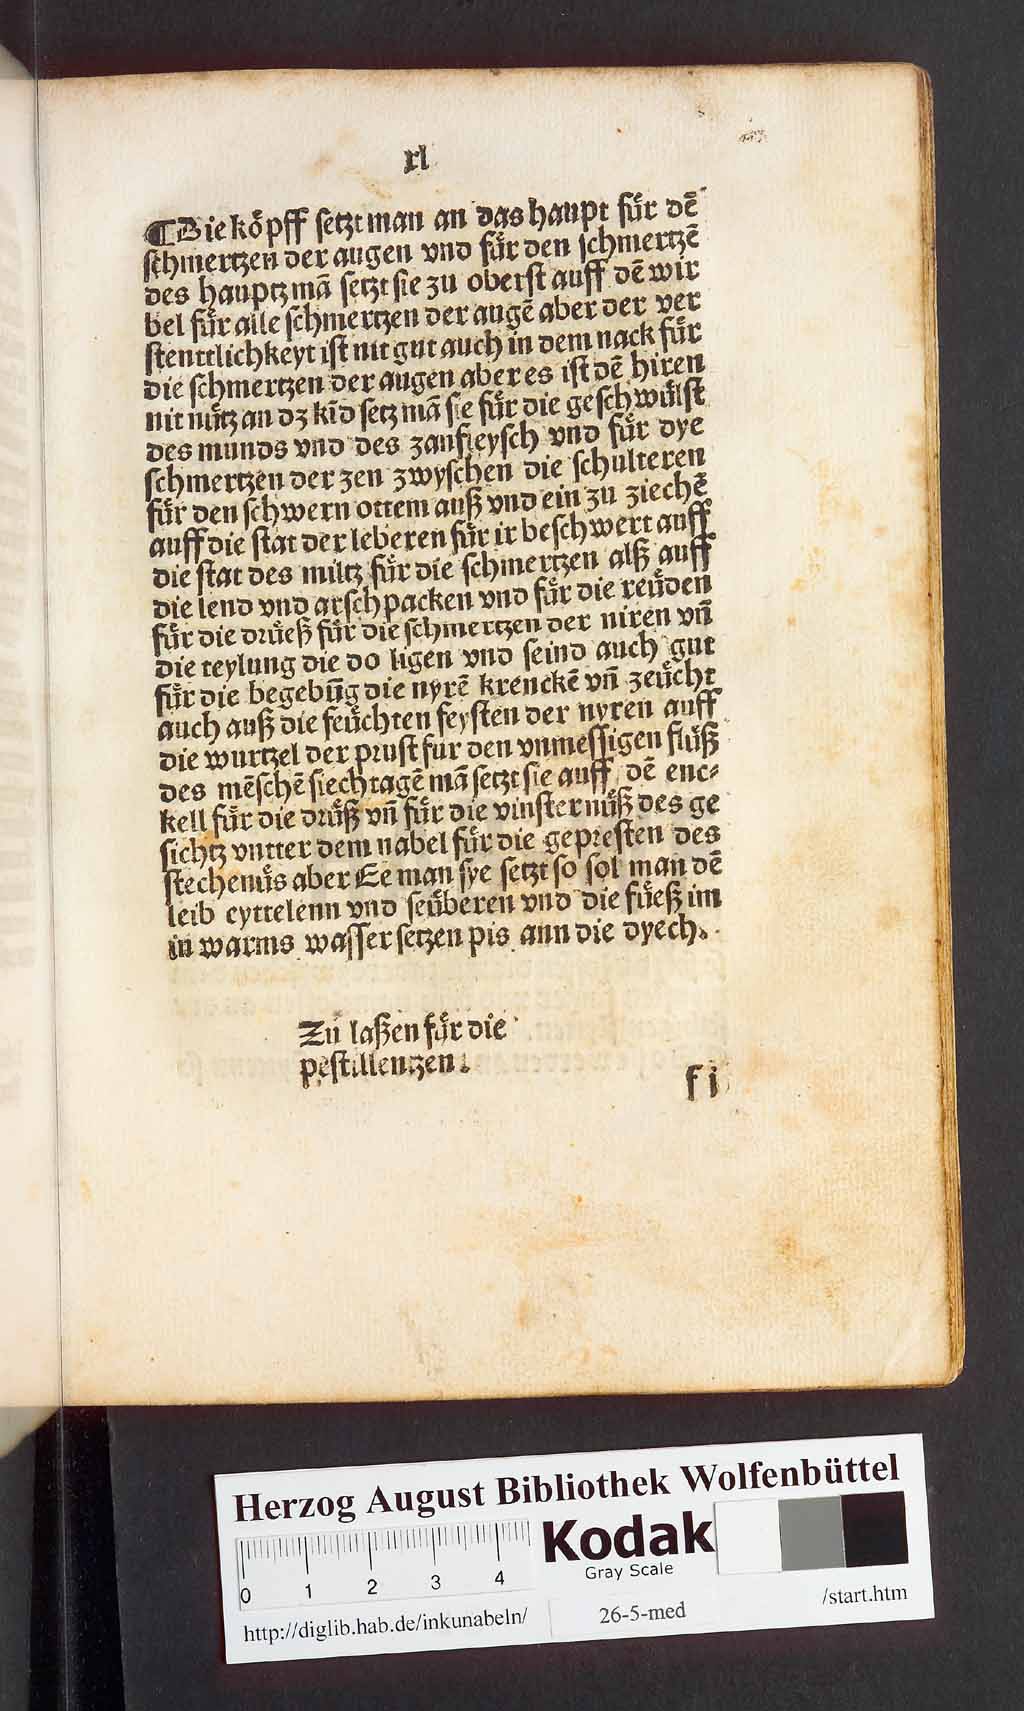 xl
¶Die köpff setzt man an das haupt für dē
schmertzen der augen vnd für den schmertzē
des hauptz mā setzt sie zu oberst auff dē wir
bel für alle schmertzen der augē aber der ver
stenttlichkeyt ist nit gut auch in dem nack für
die schmertzen der augen aber es ist dē hiren
nit nütz an dz kīd setz mā sie für die geschwülst
des munds vnd des zanfleysch vnd für dye
schmertzen der zen zwyschen die schulteren
für den schwern ottem auß vnd ein zu ziechē
auff die stat der leberen für ir beschwert auff
die stat des miltz für die schmertzen alß auff
die lend vnd arschpacken vnd für die reüden
für die drüeß für die schmertzen der niren vn̄
die teylung die do ligen vnd seind auch gut
für die begebūg die nyrē krenckē vn̄ zeücht
auch auß die feüchten feysten der nyren auff
die wurtzel der prust für den vnmessigen flüß
des mēschē siechtagē mā setzt sie auff dē enc⸗
kell für die drüß vn̄ für die vinsternüß des ge
sichtz vntter dem nabel für die gepresten des
stechenüs aber Ee man sye setzt so sol man dē
leib eyttelenn vnd seüberen vnd die füeß im
in warms wasser setzen pis ann die dyech.
Zü laßen für die
pestillentzen.
f i
Herzog August Bibliothek Wolfenbüttel
Kodak
Gray Scale
0 1 2 3 4
http://diglib.hab.de/inkunabeln/
26-5-med
/start.htm